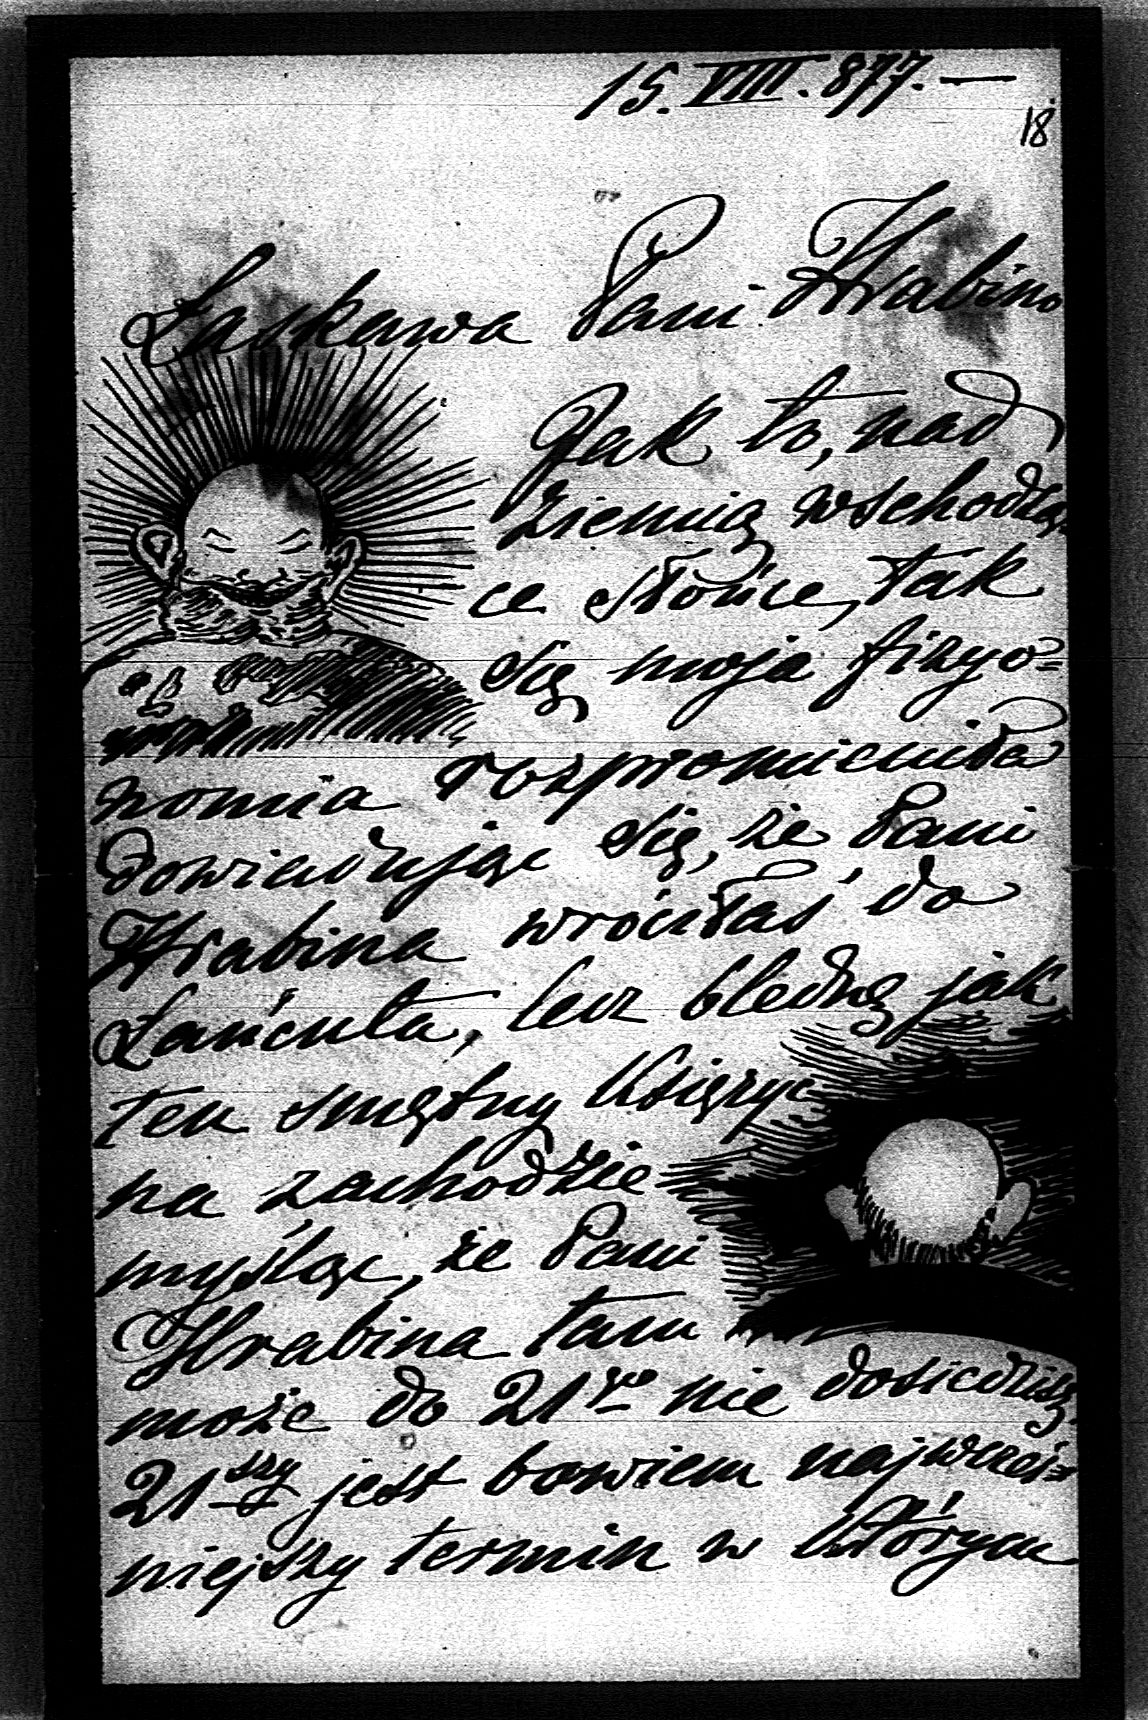 15. VIII. 877. —
18
Łaskawa Pani Hrabino
Jak to, nad
ziemią wschodzą-
ce słońce, tak
się moja fizyo=
nomia rozpromieniła
dowiadując się, że Pani
Hrabina wróciłaś do
Łańcuta, lecz blednę jak
ten smętny Księżyc
na zachodzie
myśląc, że Pani
Hrabina tam
może do 21go nie dosiedzisz,
21szy jest bowiem najwcześ=
niejszy termin w którym